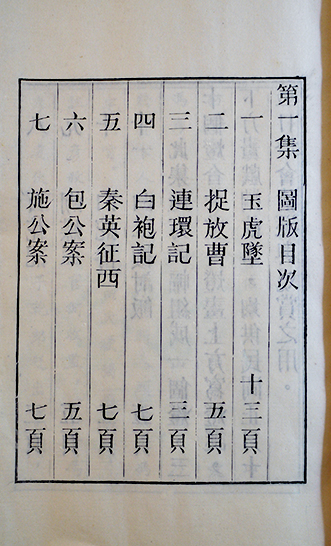 第一集 圖版目次
一 玉虎墜 十三頁
二 捉放曹 五頁
三 連環記 三頁
四 白袍記 七頁
五 秦英征西 七頁
六 包公案 五頁
七 施公案 七頁